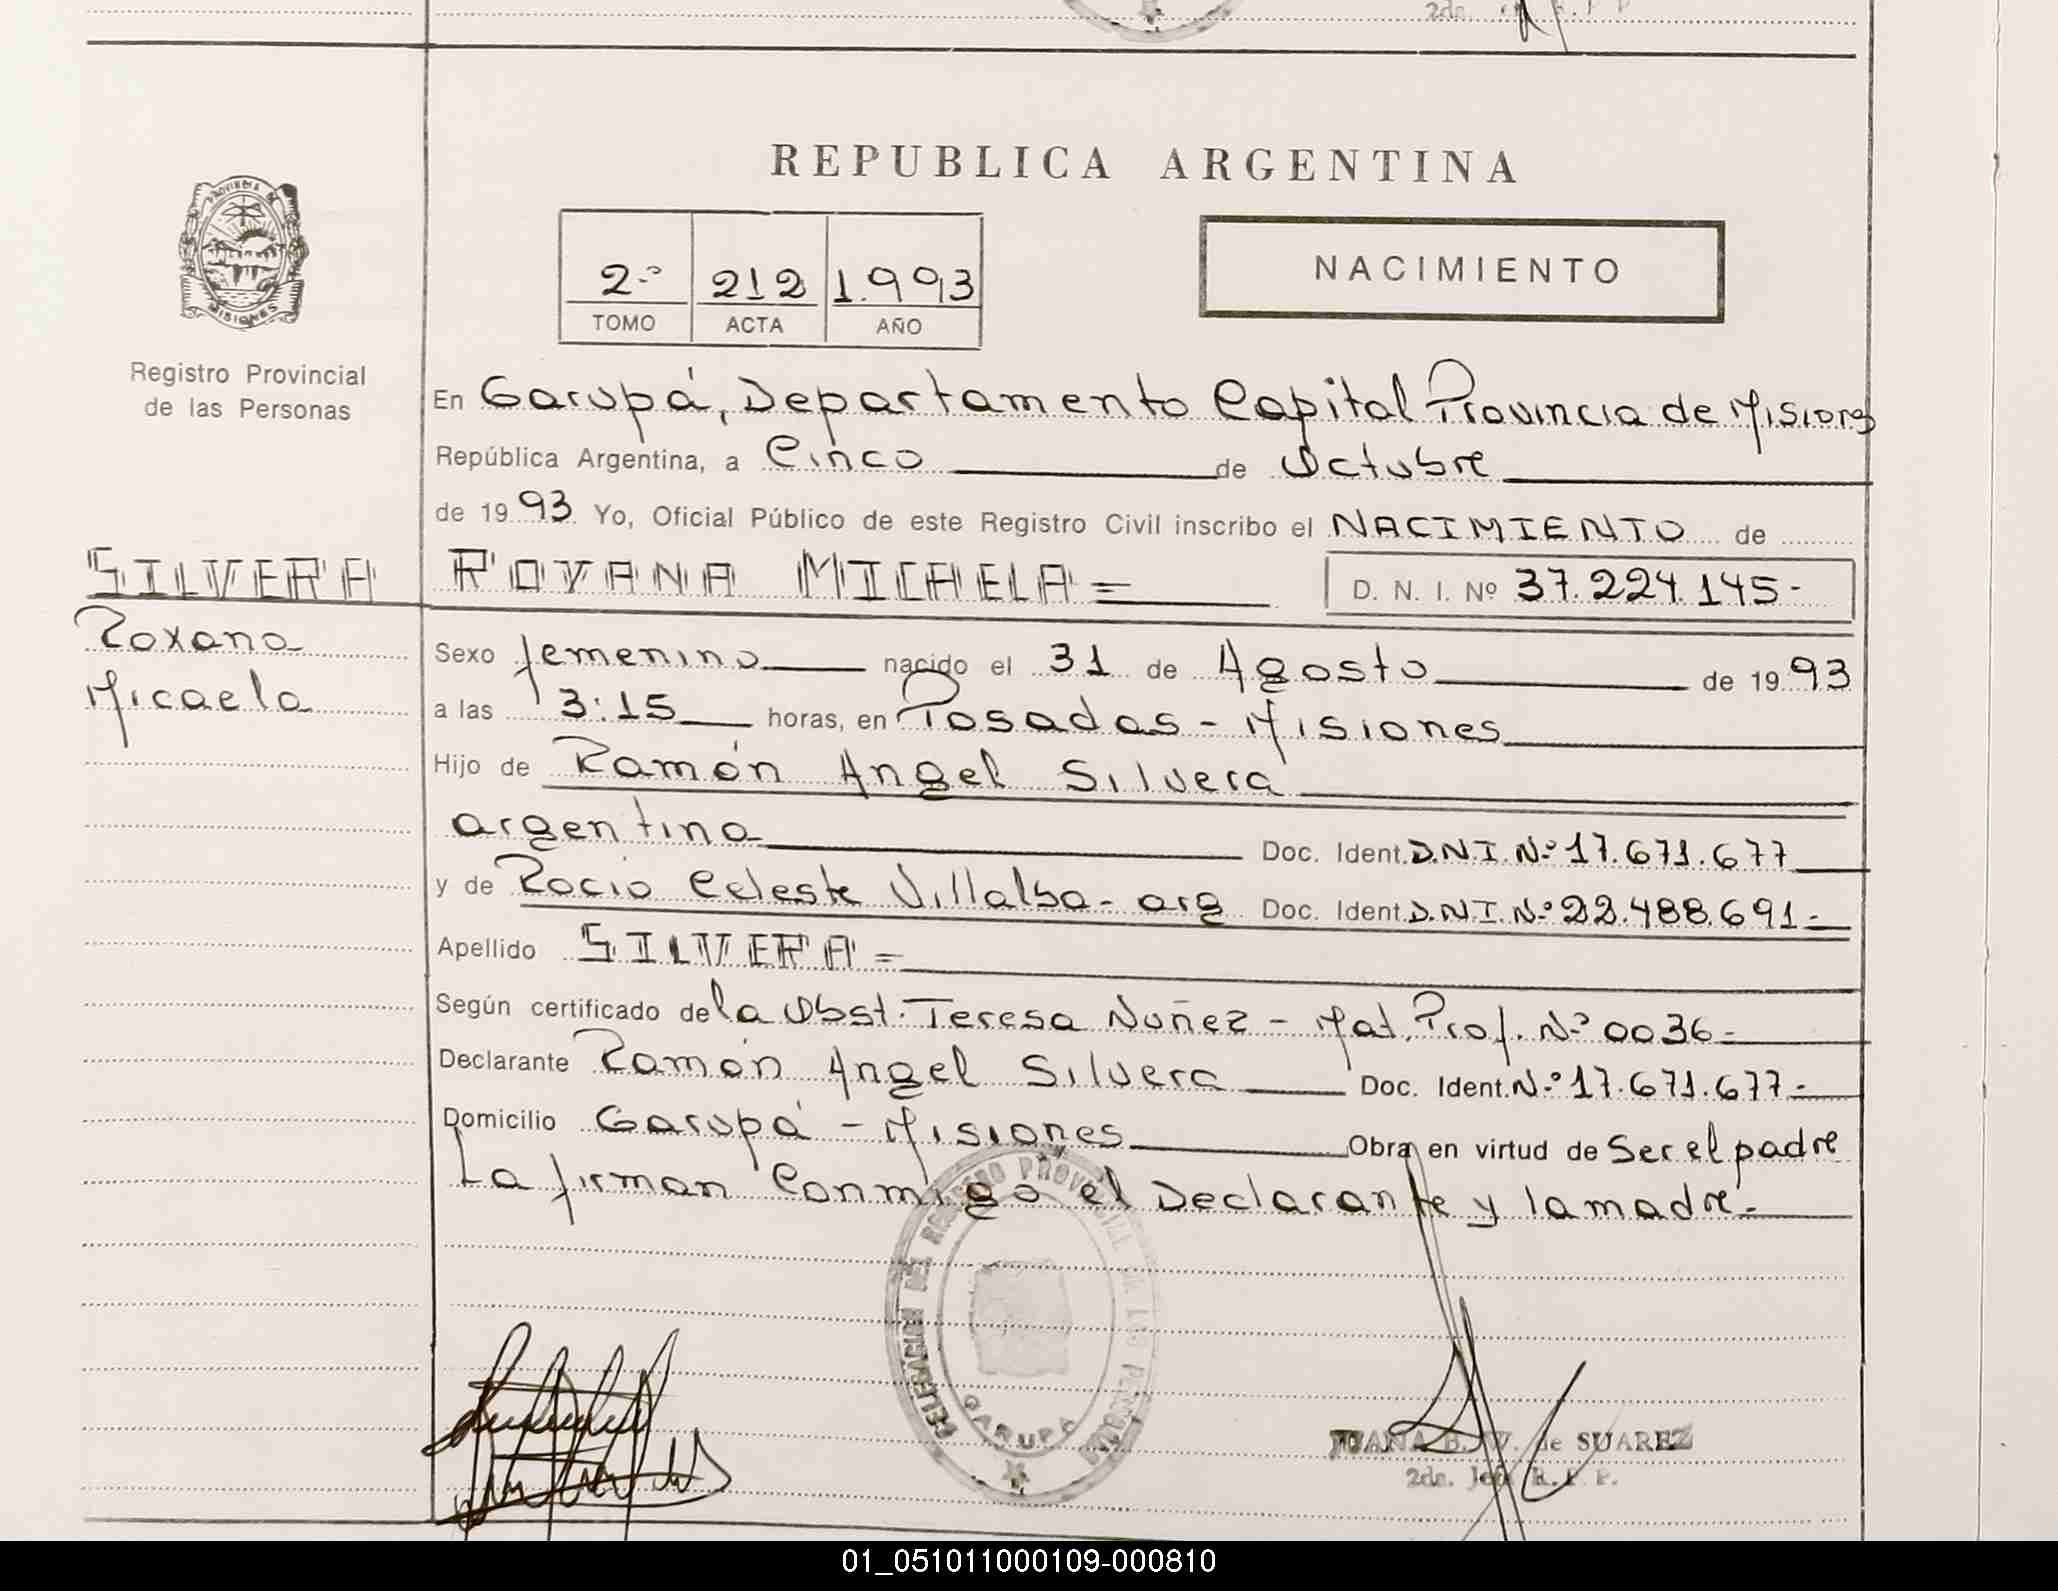 2da. R. P. P.
REPUBLICA ARGENTINA
PROVINCIA DE
MISIONES
2º 212 1.993
TOMO ACTA AÑO
NACIMIENTO
Registro Provincial
de las Personas
En Garupá, Departamento Capital Provincia de Misiones
República Argentina, a Cinco de Octubre
de 1993 Yo, Oficial Público de este Registro Civil inscribo el NACIMIENTO de
SILVERA ROXANA MICAELA =
D. N. I. Nº 37.224.145-
Roxana
Micaela
Sexo femenino nacido el 31 de Agosto de 1993
a las 3:15 horas, en Posadas - Misiones
Hijo de Ramón Angel Silvera
argentina Doc. Ident. D.N.I. Nº 17.671.677
y de Rocio Celeste Villalba - arg Doc. Ident. D.N.I. Nº 22.488.691-
Apellido SILVERA =
Según certificado de la Obst. Teresa Nuñez - Mat. Prof. Nº 0036-
Declarante Ramón Angel Silvera Doc. Ident. Nº 17.671.677-
Domicilio Garupá - Misiones Obra en virtud de Ser el padre
La firman Conmigo el Declarante y la madre.-
DELEGACION DEL REGISTRO PROVINCIAL DE LAS PERSONAS
GARUPA
JUANA B. V. de SUAREZ
2da. Jefe R. P. P.
01_051011000109-000810